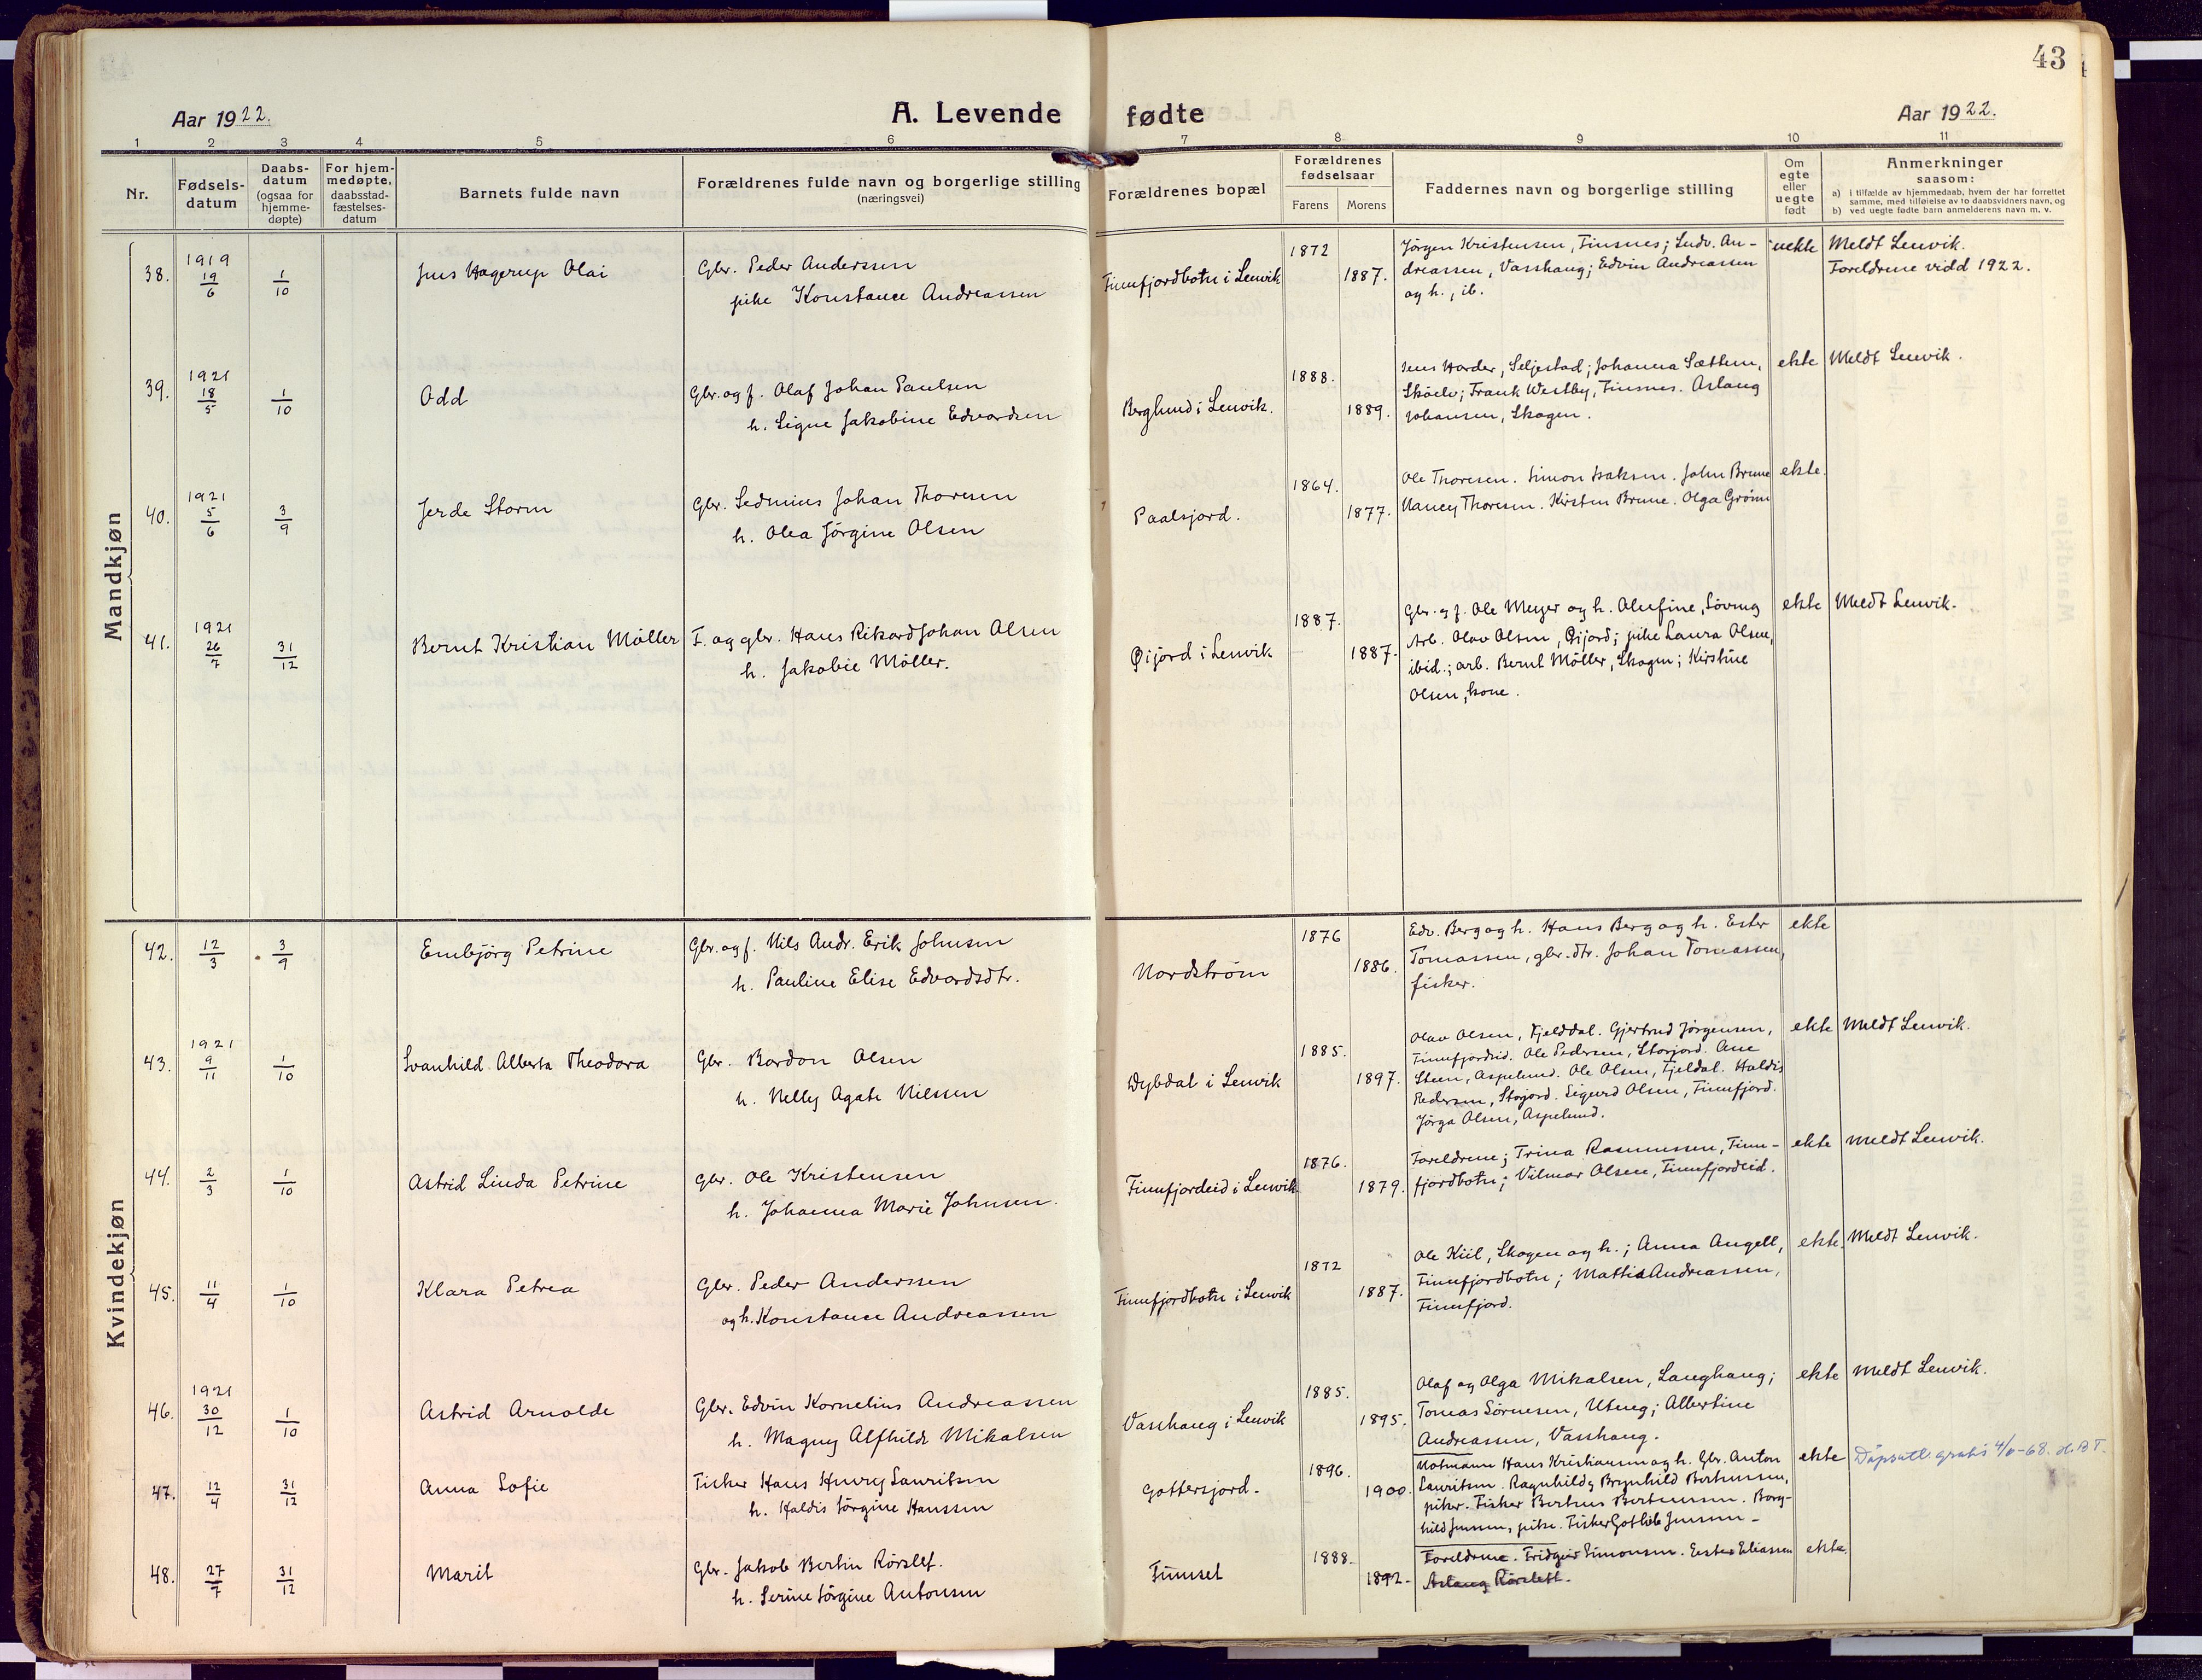 43
Aar 1922.
A. Levende fødte
Aar 1922.
1 2 3 4 5 6 7 8 9 10 11
Nr.
Fødsels-
datum
Daabs-
datum
(ogsaa for
hjemme-
døpte)
For hjem-
medøpte,
daabsstad-
fæstelses-
datum
Barnets fulde navn
Forældrenes fulde navn og borgerlige stilling
(næringsvei)
Forældrenes bopæl
Forældrenes
fødselsaar
Farens Morens
Faddernes navn og borgerlige stilling
Om
egte
eller
uegte
født
Anmerkninger
saasom:
a) i tilfælde av hjemmedaab, hvem der har forrettet
samme, med tilføielse av to daabsvidners navn, og
b) ved uegte fødte barn anmelderens navn m. v.
Mandkjøn
38. 1919 19/6 1/10 Jens Hagerup Olai
Gbr. Peder Anderssen
pike Konstance Andreassen
Finnfjordbotn i Lenvik
1872
1887.
Jörgen Kristensen, Finsnes; Ludv. An-
dreassen, Vasshaug; Edvin Andreassen
og h., ib.
uekte
Meldt Lenvik.
Foreldrene vidd 1922.
39. 1921 18/5 1/10 Odd
Gbr. og f. Olaf Johan Paulsen
h. Signe Jakobine Edvardsen
Berglund i Lenvik.
1888.
1889.
Jens Harder, Seljestad; Johanna Sættem,
Sköelv; Frank Westby, Finsnes. Aslaug
Johansen, Skogen.
ekte
Meldt Lenvik.
40. 1921 5/6 3/9 Jerde Storm
Gbr. Sedenius Johan Thoresen
h. Olea Jörgine Olsen
Paalsjord.
1864.
1877.
Ole Thoresen. Simon Isaksen. John Brune
Nancy Thoresen. Kirsten Brune. Olga Grönn
ekte.
41. 1921 26/7 31/12 Bernt Kristian Möller
F. og gbr. Hans Rikard Johan Olsen
h. Jakobie Möller.
Øijord i Lenvik
1887.
1887.
Gbr. og f. Ole Meyer og h. Olufine, Löveng
Arb. Olav Olsen, Øijord; pike Laura Olsen,
ibid.; arb. Bernt Möller, Skogen; Kirstine
Olsen, kone.
ekte
Meldt Lenvik.
Kvindekjøn
42. 12/3 3/9 Embjörg Petrine
Gbr. og f. Nils Andr. Erik Johnsen
h. Pauline Elise Edvardsdtr.
Nordström
1876
1886.
Edv. Berg og h. Hans Berg og h. Ester
Tomassen, gbr. dtr. Johan Tomassen,
fisker.
ekte
43. 1921 9/11 1/10 Svanhild Alberta Theodora
Gbr. Bardon Olsen
h. Nelly Agate Nilssen
Dybdal i Lenvik
1885.
1897.
Olav Olsen, Fjelddal. Gjertrud Jörgensen,
Finnfjordeid. Ole Pedersen, Storjord. Ane
Steen, Aspelund. Ole Olsen, Fjeldal. Haldis
Pedersen, Storjord. Sigurd Olsen, Finnfjord.
Jörga Olsen, Aspelund.
ekte
Meldt Lenvik.
44. 2/3 1/10 Astrid Linda Petrine
Gbr. Ole Kristensen
h. Johanna Marie Johnsen.
Finnfjordeid i Lenvik.
1876.
1879.
Foreldrene; Trina Rasmussen, Finn-
fjordbotn; Vilmar Olsen, Finnfjordeid.
ekte
Meldt Lenvik.
45. 11/4 1/10 Klara Petrea
Gbr. Peder Anderssen
og h. Konstance Andreassen
Finnfjordbotn i Lenvik
1872
1887.
Ole Kiil, Skogen og h.; Anna Angell,
Finnfjordbotn; Mattis Andreassen,
Finnfjord.
ekte.
Meldt Lenvik.
46. 1921 30/12 1/10 Astrid Arnolde
Gbr. Edvin Kornelius Andreassen
h. Magny Alfhilde Mikalsen
Vasshaug i Lenvik
1885.
1895.
Olaf og Olga Mikalsen, Langhaug;
Tomas Sörensen, Uteng; Albertine
Andreassen, Vasshaug.
ekte
Meldt Lenvik.
47. 12/4 31/12 Anna Sofie
Fisker Hans Henry Lauritsen
h. Haldis Jörgine Hanssen
Gottersjord.
1896.
1900.
Notmann Hans Kristiansen og h. Gbr. Anton
Lauritsen. Ragnhild og Brynhild Berteussen,
piker. Fisker Berteus Berteussen. Borg-
hild Jensen, pike. Fisker Gotlieb Jensen
ekte
Dåpsatt. gratis
48. 27/7 31/12 Marit
Gbr. Jakob Bertin Rörslet.
h. Serine Jörgine Antonsen
Finnset
1888.
1892.
Foreldrene. Fridgeir Simonsen. Ester Eliassen
Aslaug Rörslett.
ekte.